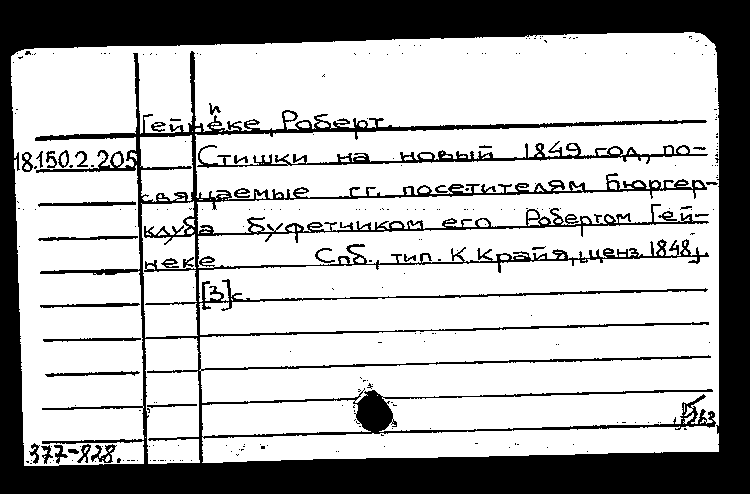 Гейнеке, Роберт.
18.150.2.205 Стишки на новый 1849 год, по-
свящаемые гг. посетителям Бюргер-
клуба буфетчиком его Робертом Гей-
неке. Спб., тип. К. Крайя, [ценз. 1848].
[3]с.
377-828.